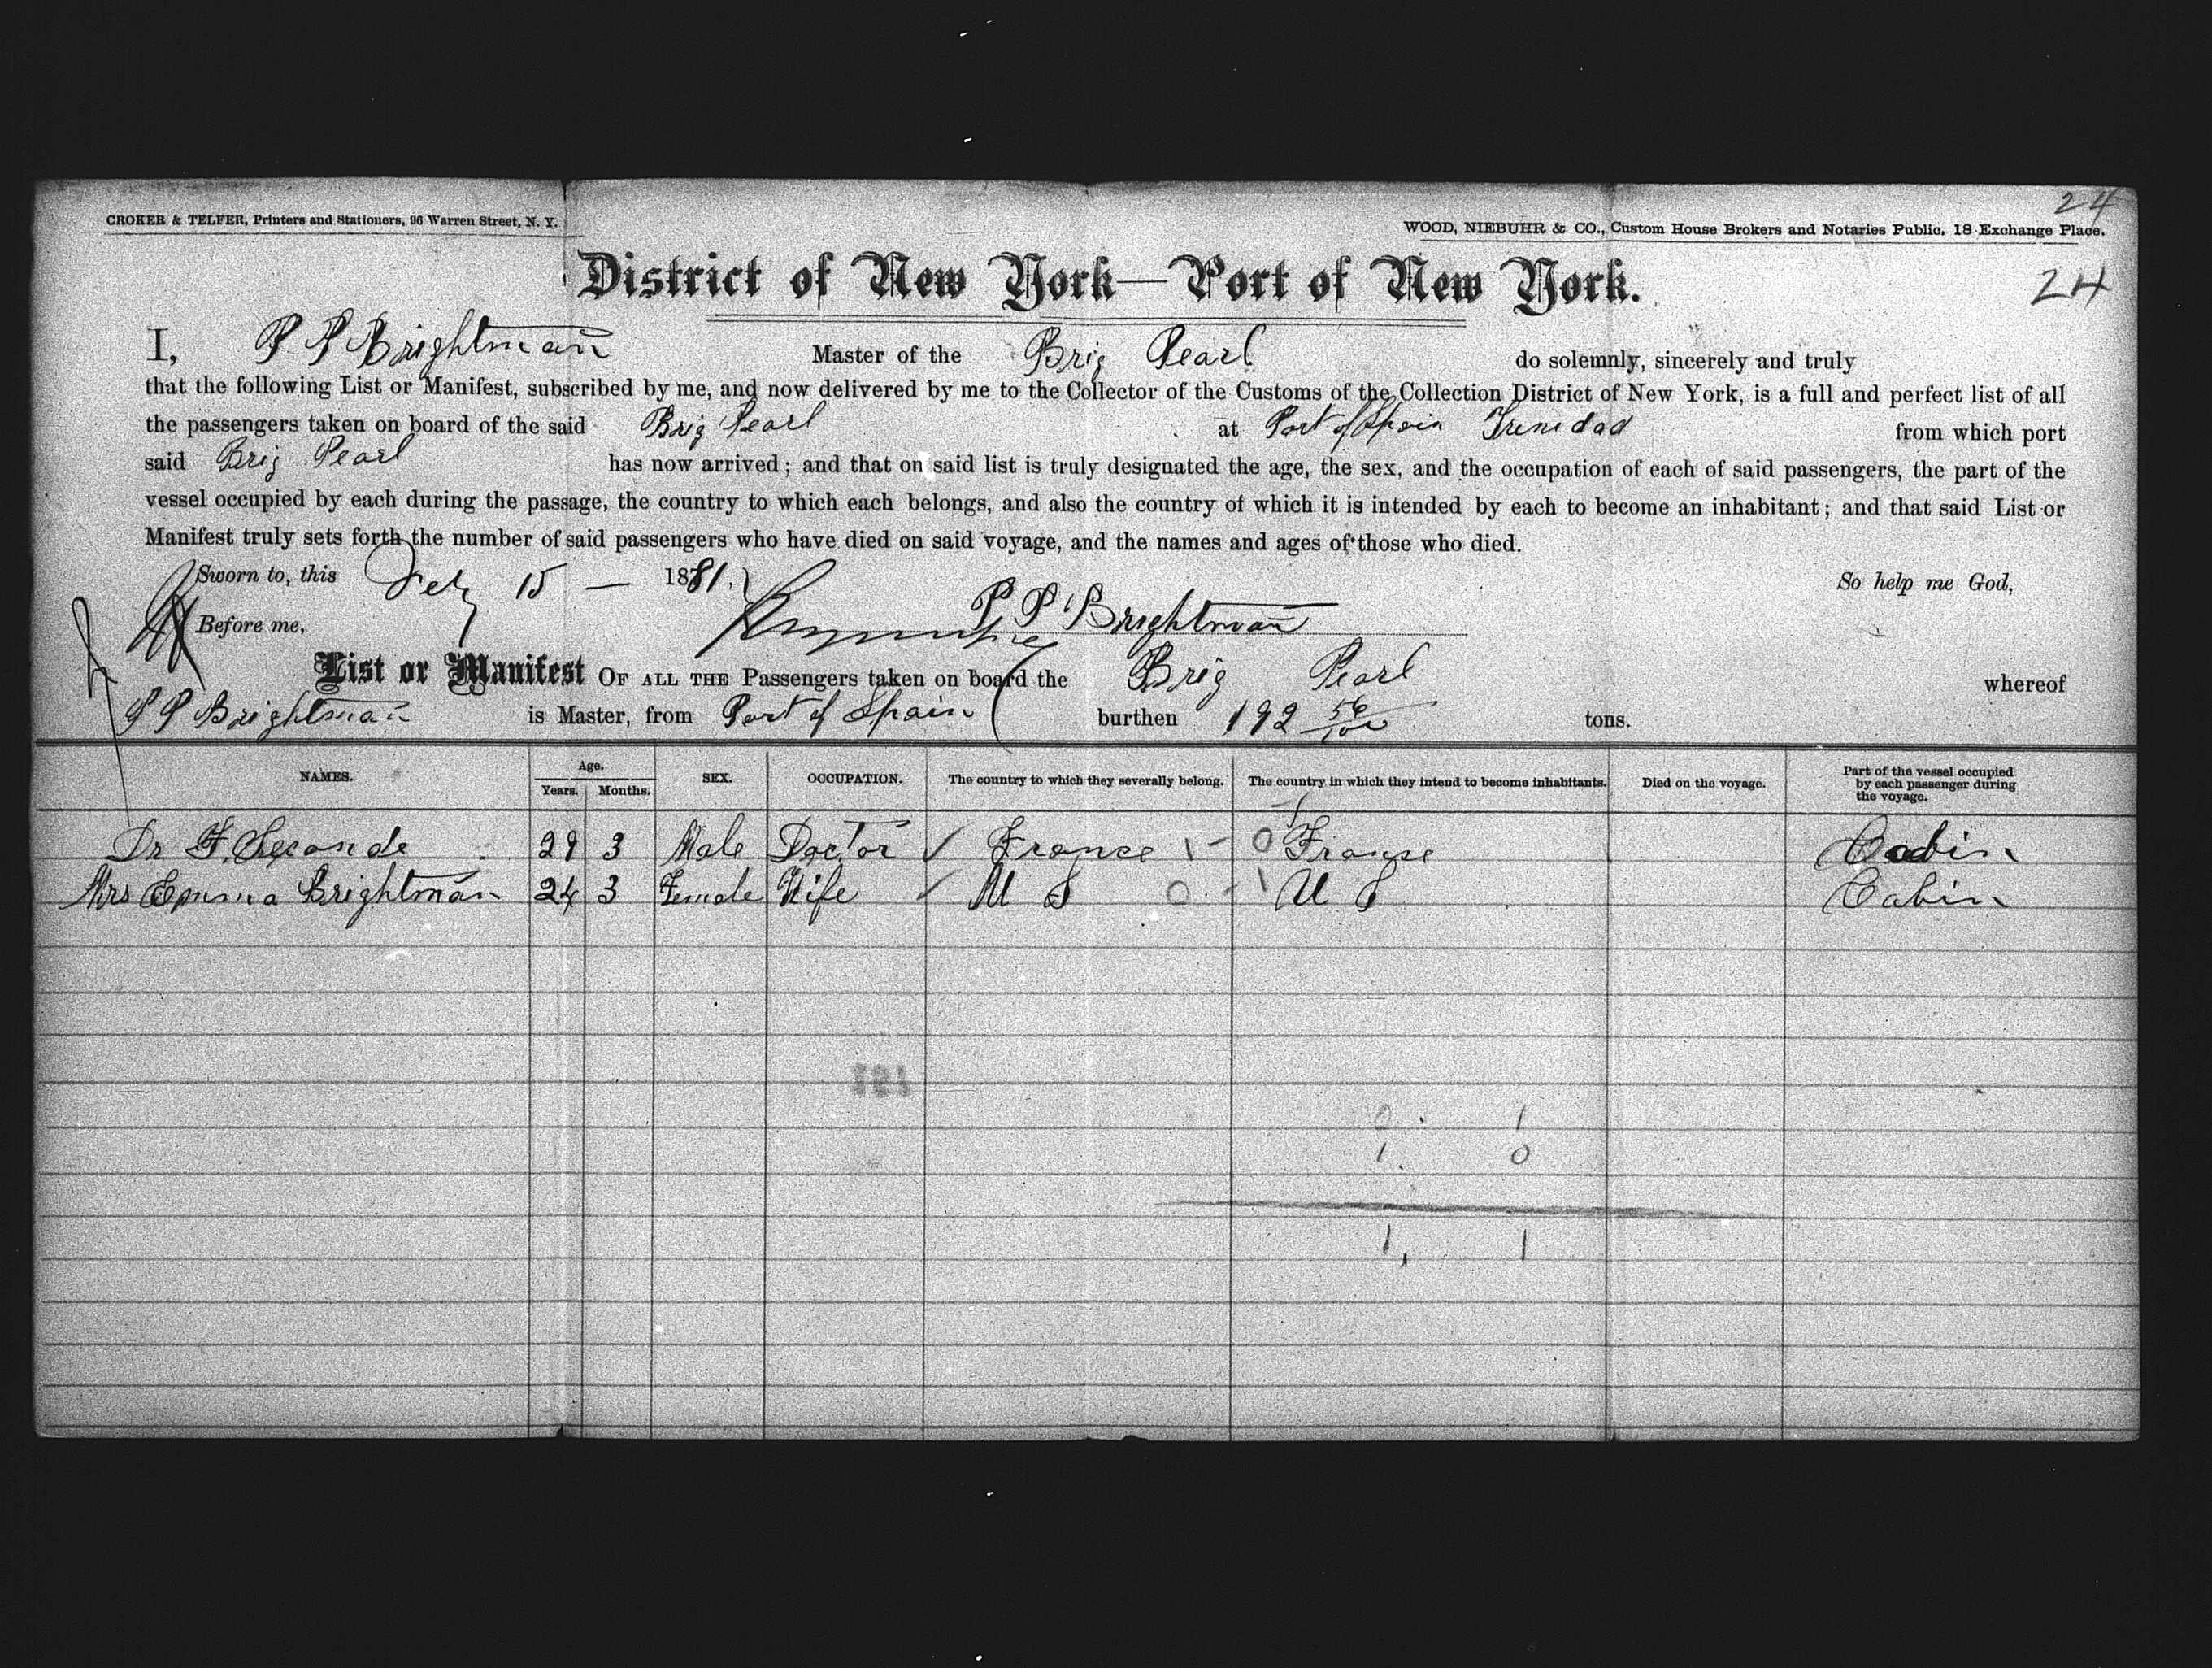 24
CROKER & TELFER, Printers and Stationers, 96 Warren Street, N. Y.
WOOD, NIEBUHR & CO., Custom House Brokers and Notaries Public, 18 Exchange Place.
District of New York—Port of New York.
24
I, P P Brightman Master of the Brig Pearl do solemnly, sincerely and truly
that the following List or Manifest, subscribed by me, and now delivered by me to the Collector of the Customs of the Collection District of New York, is a full and perfect list of all
the passengers taken on board of the said Brig Pearl at Port of Spain Trinidad from which port
said Brig Pearl has now arrived; and that on said list is truly designated the age, the sex, and the occupation of each of said passengers, the part of the
vessel occupied by each during the passage, the country to which each belongs, and also the country of which it is intended by each to become an inhabitant; and that said List or
Manifest truly sets forth the number of said passengers who have died on said voyage, and the names and ages of those who died.
Sworn to, this Feby 15 — 1881. So help me God,
Before me, P P Brightman
List or Manifest OF ALL THE Passengers taken on board the Brig Pearl whereof
P P Brightman is Master, from Port of Spain burthen 192 56/100 tons.
NAMES. Age. Years. Months. SEX. OCCUPATION. The country to which they severally belong. The country in which they intend to become inhabitants. Died on the voyage. Part of the vessel occupied by each passenger during the voyage.
Dr F. 29 3 Male Doctor ✓ France 1 - 0 France Cabin
Mrs Emma Brightman 24 3 Female Wife ✓ U S 0 - 1 U S Cabin
0 1
1 0
1, 1